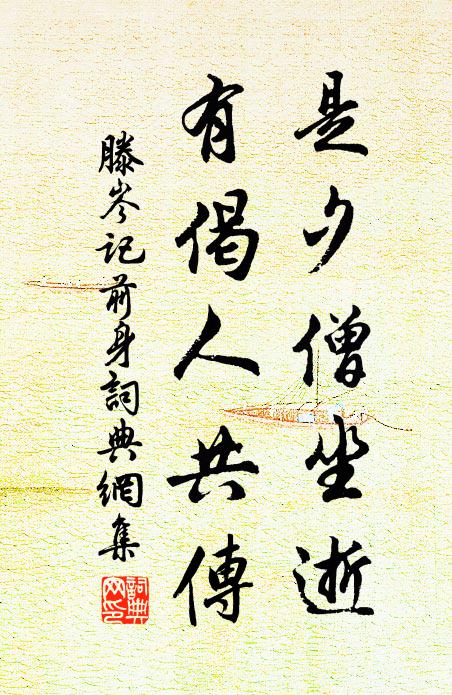 是夕僧坐逝
有偈人共傳
滕岑記前身詞典網集
詞典
网印